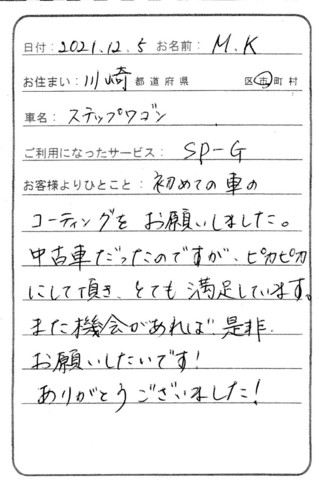 日付：2021.12.5 お名前：M.K
お住まい：川崎 都道府県 区市町村
車名：ステップワゴン
ご利用になったサービス：SP-G
お客様よりひとこと：初めての車の
コーティングをお願いしました。
中古車だったのですが、ピカピカ
にして頂き、とても満足しています。
また機会があれば是非
お願いしたいです！
ありがとうございました！